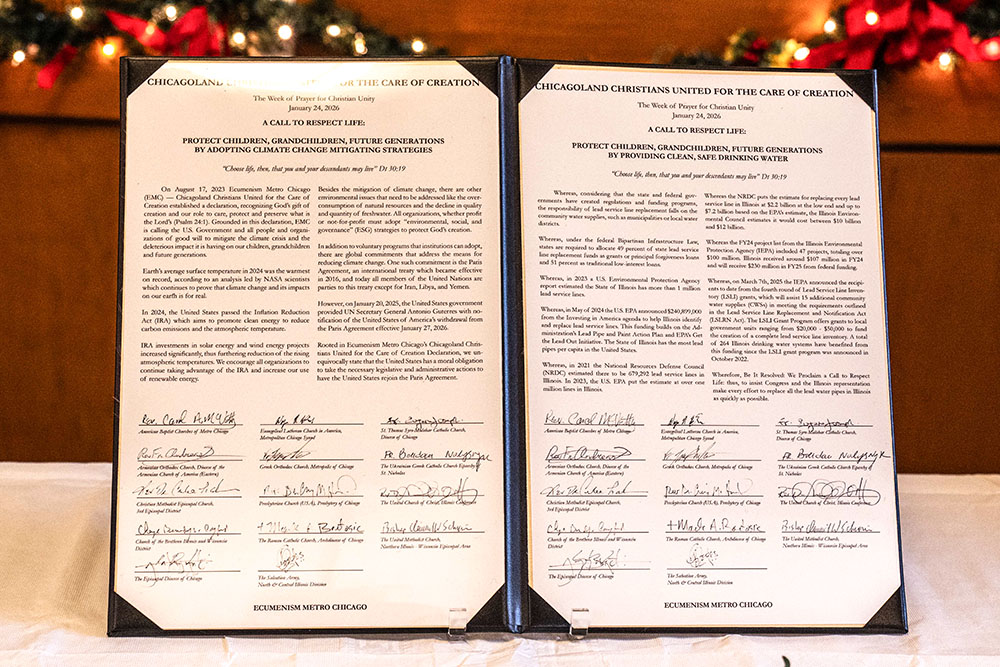 CHICAGOLAND CHRISTIANS UNITED FOR THE CARE OF CREATION
The Week of Prayer for Christian Unity
January 24, 2026
A CALL TO RESPECT LIFE:
PROTECT CHILDREN, GRANDCHILDREN, FUTURE GENERATIONS
BY ADOPTING CLIMATE CHANGE MITIGATING STRATEGIES
"Choose life, then, that you and your descendants may live" Dt 30:19
On August 17, 2023 Ecumenism Metro Chicago
(EMC) — Chicagoland Christians United for the Care of
Creation established a declaration, recognizing God's gift of
creation and our role to care, protect and preserve what is
the Lord's (Psalm 24:1). Grounded in this declaration, EMC
is calling the U.S. Government and all people and organi-
zations of good will to mitigate the climate crisis and the
deleterious impact it is having on our children, grandchildren
and future generations.
Earth's average surface temperature in 2024 was the warmest
on record, according to an analysis led by NASA scientists
which continues to prove that climate change and its impacts
on our earth is for real.
In 2024, the United States passed the Inflation Reduction
Act (IRA) which aims to promote clean energy to reduce
carbon emissions and the atmospheric temperature.
IRA investments in solar energy and wind energy projects
increased significantly, thus furthering reduction of the rising
atmospheric temperatures. We encourage all organizations to
continue taking advantage of the IRA and increase our use
of renewable energy.
Besides the mitigation of climate change, there are other
environmental issues that need to be addressed like the over-
consumption of natural resources and the decline in quality
and quantity of freshwater. All organizations, whether profit
or not-for-profit must adopt "environmental, social, and
governance" (ESG) strategies to protect God's creation.
In addition to voluntary programs that institutions can adopt,
there are global commitments that address the means for
reducing climate change. One such commitment is the Paris
Agreement, an international treaty which became effective
in 2016, and today all members of the United Nations are
parties to this treaty except for Iran, Libya, and Yemen.
However, on January 20, 2025, the United States government
provided UN Secretary General Antonio Guterres with no-
tification of the United States of America's withdrawal from
the Paris Agreement effective January 27, 2026.
Rooted in Ecumenism Metro Chicago's Chicagoland Chris-
tians United for the Care of Creation Declaration, we un-
equivocally state that the United States has a moral obligation
to take the necessary legislative and administrative actions to
have the United States rejoin the Paris Agreement.
Rev. Carol A. McVetty
American Baptist Churches of Metro Chicago
Evangelical Lutheran Church in America,
Metropolitan Chicago Synod
St. Thomas Syro-Malabar Catholic Church,
Diocese of Chicago
Armenian Orthodox Church, Diocese of the
Armenian Church of America (Eastern)
Greek Orthodox Church, Metropolis of Chicago
The Ukrainian Greek Catholic Church Eparchy of
St. Nicholas
Christian Methodist Episcopal Church,
3rd Episcopal District
Presbyterian Church (U.S.A), Presbytery of Chicago
The United Church of Christ, Illinois Conference
Church of the Brethren Illinois and Wisconsin
District
The Roman Catholic Church, Archdiocese of Chicago
The United Methodist Church,
Northern Illinois - Wisconsin Episcopal Area
The Episcopal Diocese of Chicago
The Salvation Army,
North & Central Illinois Division
ECUMENISM METRO CHICAGO
CHICAGOLAND CHRISTIANS UNITED FOR THE CARE OF CREATION
The Week of Prayer for Christian Unity
January 24, 2026
A CALL TO RESPECT LIFE:
PROTECT CHILDREN, GRANDCHILDREN, FUTURE GENERATIONS
BY PROVIDING CLEAN, SAFE DRINKING WATER
"Choose life, then, that you and your descendants may live" Dt 30:19
Whereas, considering that the state and federal gov-
ernments have created regulations and funding programs,
the responsibility of lead service line replacement falls on the
community water supplies, such as municipalities or local water
districts.
Whereas, under the federal Bipartisan Infrastructure Law,
states are required to allocate 49 percent of state lead service
line replacement funds as grants or principal forgiveness loans
and 51 percent as traditional low-interest loans.
Whereas, in 2023 a U.S. Environmental Protection Agency
report estimated the State of Illinois has more than 1 million
lead service lines.
Whereas, in May of 2024 the U.S. EPA announced $240,899,000
from the Investing in America agenda to help Illinois identify
and replace lead service lines. This funding builds on the Ad-
ministration's Lead Pipe and Paint Action Plan and EPA's Get
the Lead Out Initiative. The State of Illinois has the most lead
pipes per capita in the United States.
Whereas, in 2021 the National Resources Defense Council
(NRDC) estimated there to be 679,292 lead service lines in
Illinois. In 2023, the U.S. EPA put the estimate at over one
million lines in Illinois.
Whereas the NRDC puts the estimate for replacing every lead
service line in Illinois at $2.2 billion at the low end and up to
$7.2 billion based on the EPA's estimate, the Illinois Environ-
mental Council estimates it would cost between $10 billion
and $12 billion.
Whereas the FY24 project list from the Illinois Environmental
Protection Agency (IEPA) included 47 projects, totaling over
$100 million. Illinois received around $107 million in FY24
and will receive $230 million in FY25 from federal funding.
Whereas, on March 7th, 2025 the IEPA announced the recipi-
ents to date from the fourth round of Lead Service Line Inven-
tory (LSLI) grants, which will assist 15 additional community
water supplies (CWSs) in meeting the requirements outlined
in the Lead Service Line Replacement and Notification Act
(LSLRN Act). The LSLI Grant Program offers grants to local
government units ranging from $20,000 - $50,000 to fund
the creation of a complete lead service line inventory. A total
of 264 Illinois drinking water systems have benefited from
this funding since the LSLI grant program was announced in
October 2022.
Wherefore, Be It Resolved: We Proclaim a Call to Respect
Life: thus, to insist Congress and the Illinois representation
make every effort to replace all the lead water pipes in Illinois
as quickly as possible.
Rev. Carol McVetty
American Baptist Churches of Metro Chicago
Evangelical Lutheran Church in America,
Metropolitan Chicago Synod
St. Thomas Syro-Malabar Catholic Church,
Diocese of Chicago
Armenian Orthodox Church, Diocese of the
Armenian Church of America (Eastern)
Greek Orthodox Church, Metropolis of Chicago
The Ukrainian Greek Catholic Church Eparchy of
St. Nicholas
Christian Methodist Episcopal Church,
3rd Episcopal District
Presbyterian Church (U.S.A), Presbytery of Chicago
The United Church of Christ, Illinois Conference
Church of the Brethren Illinois and Wisconsin
District
The Roman Catholic Church, Archdiocese of Chicago
The United Methodist Church,
Northern Illinois - Wisconsin Episcopal Area
The Episcopal Diocese of Chicago
The Salvation Army,
North & Central Illinois Division
ECUMENISM METRO CHICAGO